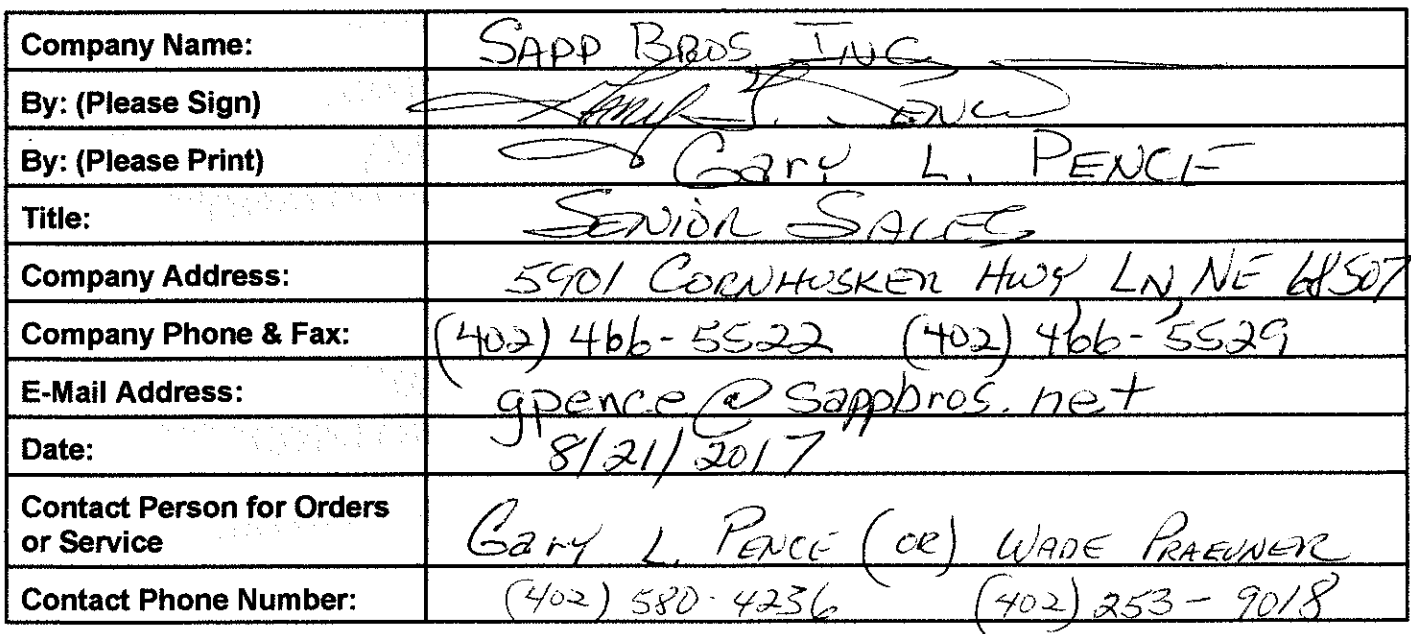 Company Name: SAPP BROS INC
By: (Please Sign) Gary L. Pence
By: (Please Print) Gary L. PENCE
Title: SENIOR SALES
Company Address: 5901 CORNHUSKER HWY LN, NE 68507
Company Phone & Fax: (402) 466-5522 (402) 466-5529
E-Mail Address: gpence@sappbros.net
Date: 8/21/2017
Contact Person for Orders
or Service Gary L. PENCE (OR) WADE PRAEUNER
Contact Phone Number: (402) 580-4236 (402) 253-9018